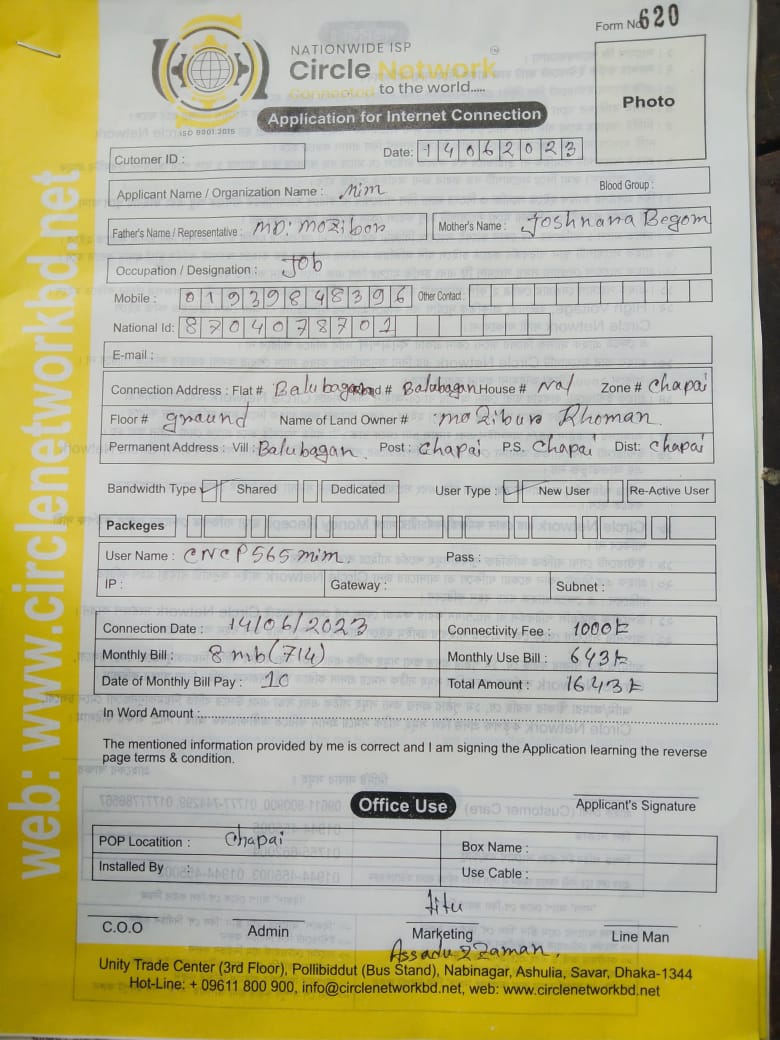 Form No 620
NATIONWIDE ISP
Circle Network
Connected to the world.....
ISO 9001:2015
Application for Internet Connection
Photo
Cutomer ID :
Date: 14062023
Applicant Name / Organization Name : Mim
Blood Group :
Father's Name / Representative : MD: Mozibor
Mother's Name : Joshnara Begom
Occupation / Designation : Job
Mobile : 01939848396 Other Contact :
National Id: 8704078701
E-mail :
Connection Address : Flat # Balubagan Road # Balubagan House # Nal Zone # Chapai
Floor # ground Name of Land Owner # : Mozibur Rhoman
Permanent Address : Vill : Balubagan. Post : Chapai P.S. Chapai Dist: Chapai
Bandwidth Type Shared Dedicated User Type : New User Re-Active User
Packeges
User Name : CNCP565mim. Pass :
IP : Gateway : Subnet :
Connection Date : 14/06/2023 Connectivity Fee : 1000৳
Monthly Bill : 8 mb (714) Monthly Use Bill : 643৳
Date of Monthly Bill Pay : 10 Total Amount : 1643৳
In Word Amount :
The mentioned information provided by me is correct and I am signing the Application learning the reverse
page terms & condition.
Office Use
Applicant's Signature
POP Locatition : Chapai Box Name :
Installed By : Use Cable :
Titu
C.O.O Admin Marketing Line Man
Assaduzzaman.
Unity Trade Center (3rd Floor), Pollibiddut (Bus Stand), Nabinagar, Ashulia, Savar, Dhaka-1344
Hot-Line: + 09611 800 900, info@circlenetworkbd.net, web: www.circlenetworkbd.net
web: www.circlenetworkbd.net